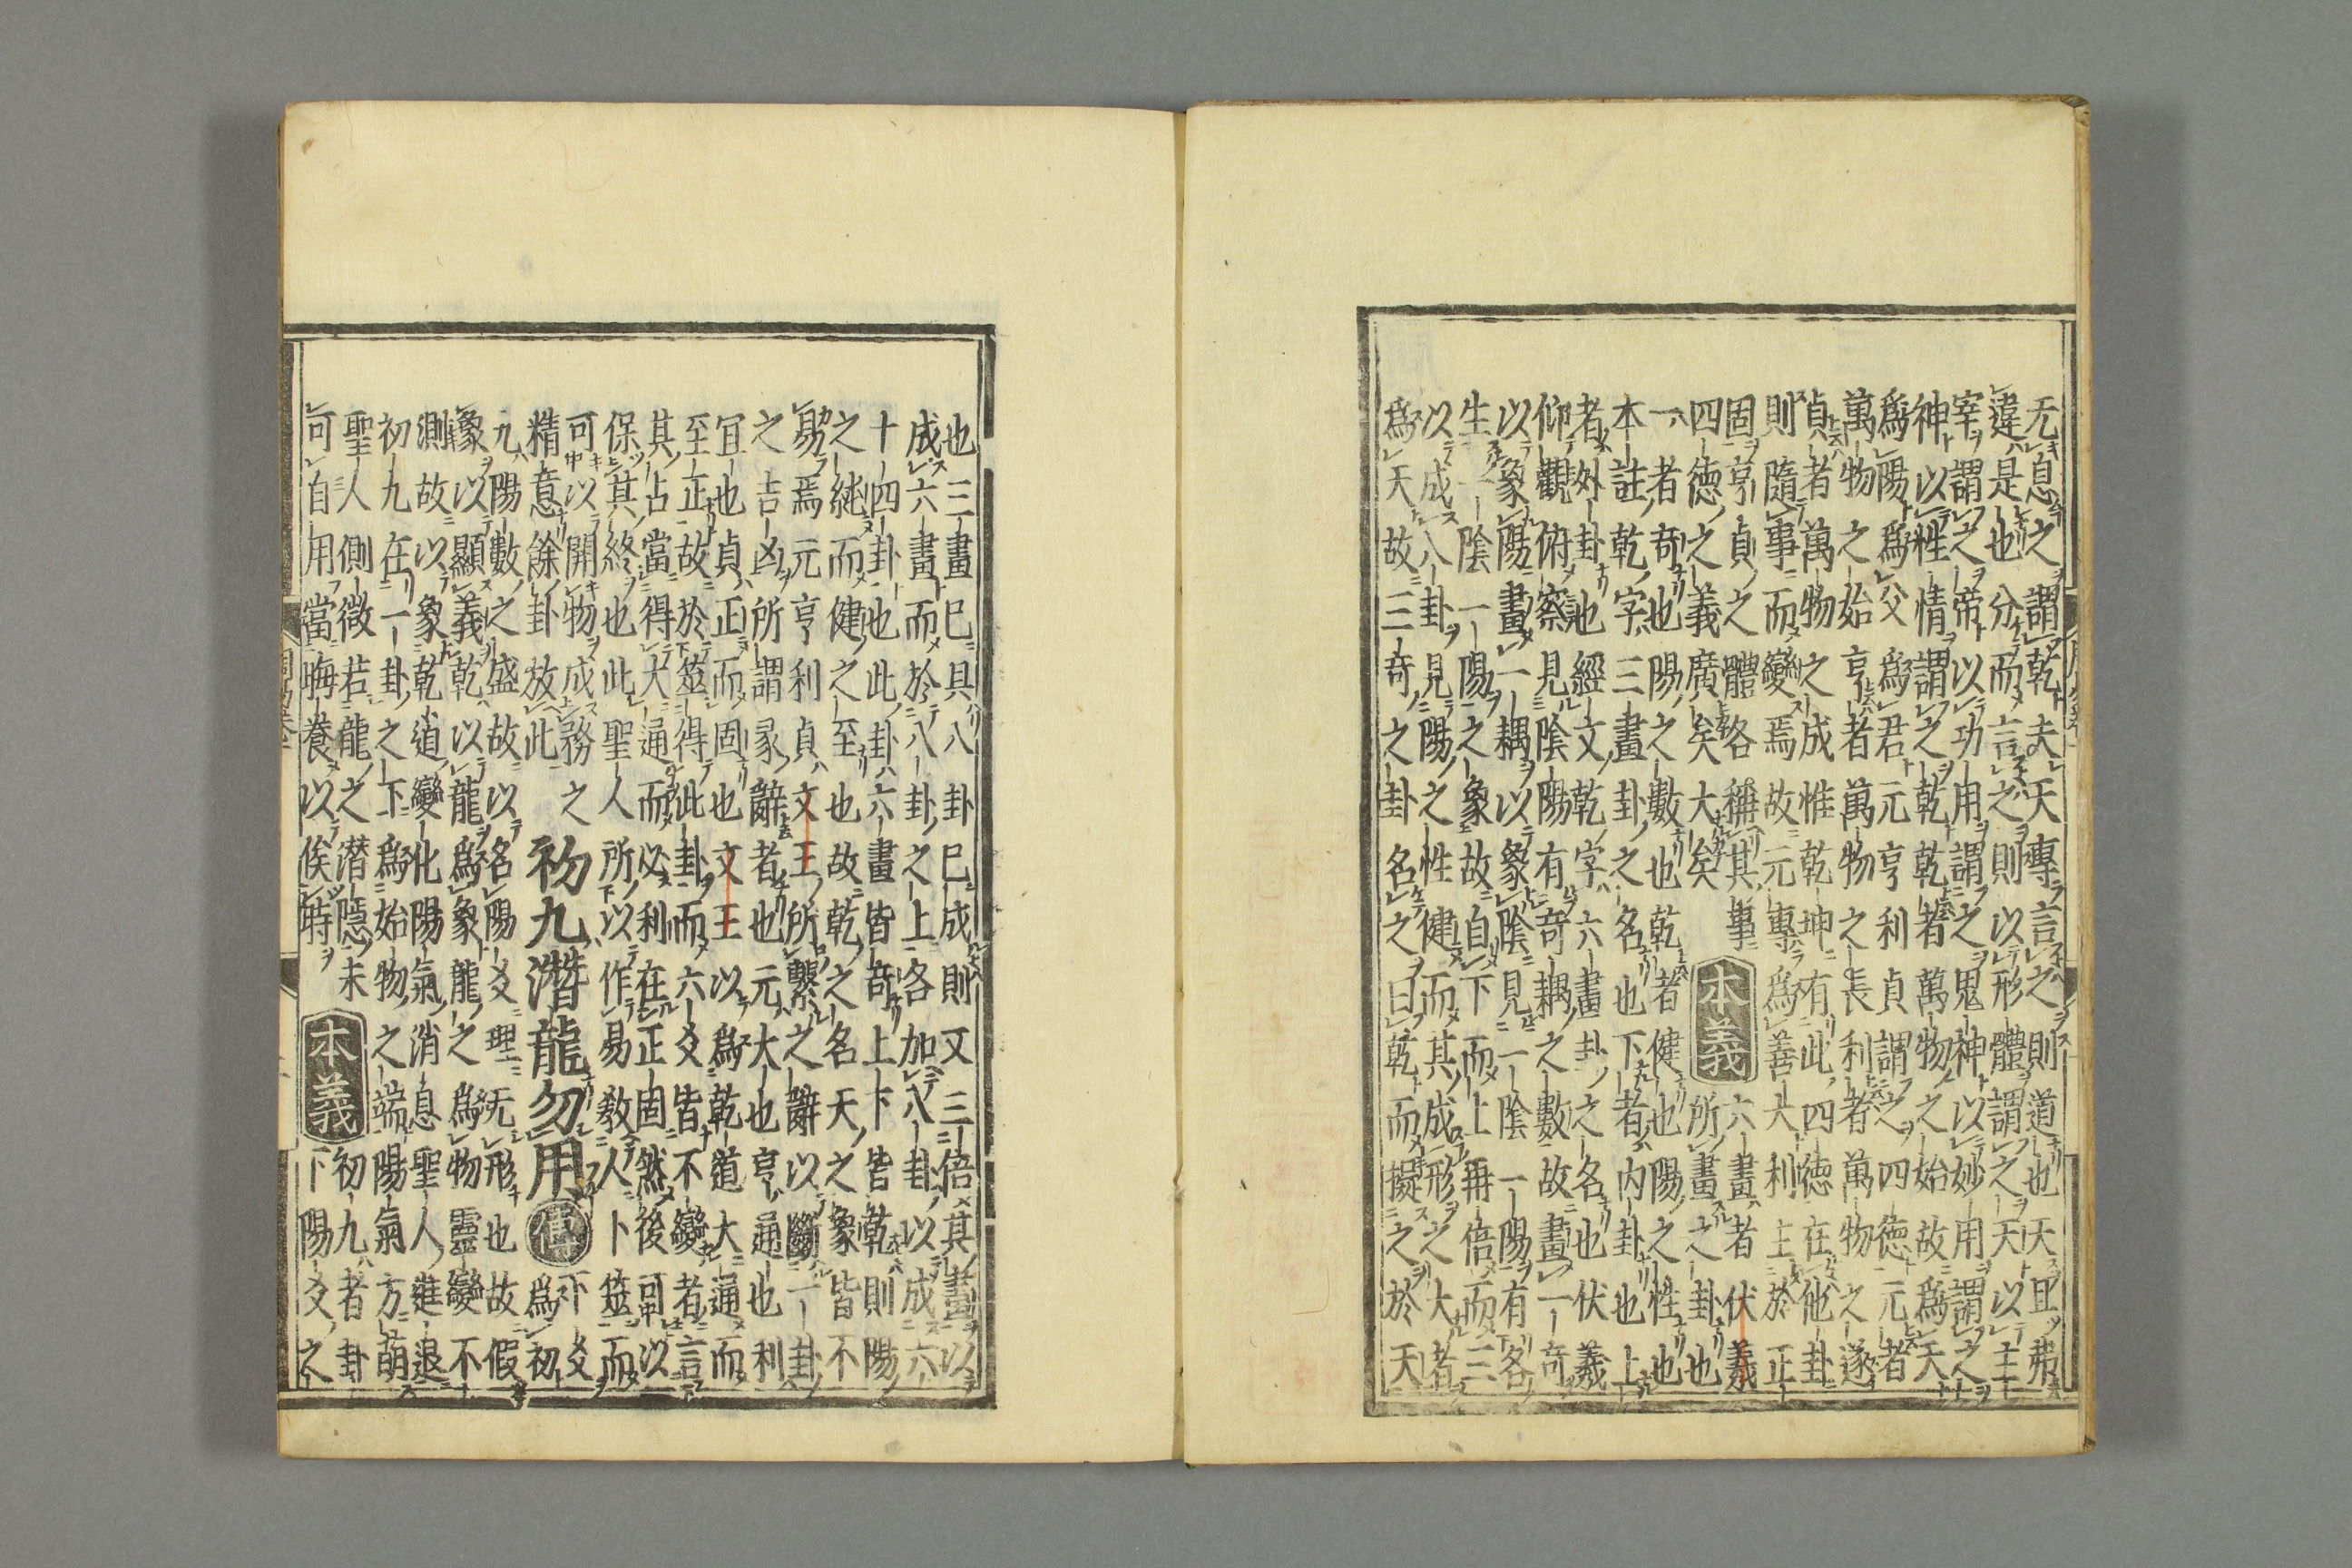 无息之謂乾夫天專言之則道也天且弗
違是也分而言之則以形體謂之天以主
宰謂之帝以功用謂之鬼神以妙用謂之
神以性情謂之乾乾者萬物之始故爲天
爲陽爲父爲君元亨利貞謂之四徳元者
萬物之始亨者萬物之長利者萬物之遂
貞者萬物之成惟乾坤有此四徳在他卦
則隨事而變焉故元專爲善大利主於正
固亨貞之體各稱其事
四徳之義廣矣大矣
本義
六畫者伏羲
所畫之卦也
一者奇也陽之數也乾者健也陽之性也
本註乾字三畫卦之名也下者内卦也上
者外卦也經文乾字六畫卦之名也伏羲
仰觀俯察見陰陽有奇耦之數故畫一奇
以象陽畫一耦以象陰見一陰一陽有各
生一陰一陽之象故自下而上再倍而三
以成八卦見陽之性健而其成形之大者
爲天故三奇之卦名之曰乾而擬之於天
也三畫已具八卦已成則又三倍其畫以
成六畫而於八卦之上各加八卦以成六
十四卦也此卦六畫皆奇上下皆乾則陽
之純而健之至也故乾之名天之象皆不
易焉元亨利貞文王所繫之辭以斷一卦
之吉凶所謂彖辭者也元大也亨通也利
宜也貞正而固也文王以爲乾道大通而
至正故於筮得此卦而六爻皆不變者言
其占當得大通而必利在正固然後可以
保其終也此聖人所以作易教人卜筮而
可以開物成務之
精意餘卦放此
初九潛龍勿用
傳
下爻
爲初
九陽數之盛故以名陽爻理无形也故假
象以顯義乾以龍爲象龍之爲物靈變不
測故以象乾道變化陽氣消息聖人進退
初九在一卦之下爲始物之端陽氣方萌
聖人側微若龍之潛隱未
可自用當晦養以俟時
本義
初九者卦
下陽爻之